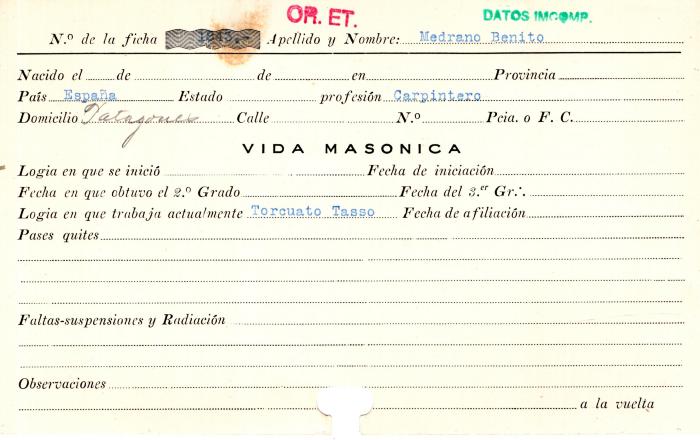 OR. ET. DATOS IMCOMP.
N.º de la ficha Apellido y Nombre: Medrano Benito
Nacido el de de en Provincia
País España Estado profesión Carpintero
Domicilio Patagones Calle N.º Pcia. o F. C.
VIDA MASONICA
Logia en que se inició Fecha de iniciación
Fecha en que obtuvo el 2.º Grado Fecha del 3.er Gr∴
Logia en que trabaja actualmente Torcuato Tasso Fecha de afiliación
Pases quites
Faltas-suspensiones y Radiación
Observaciones
a la vuelta